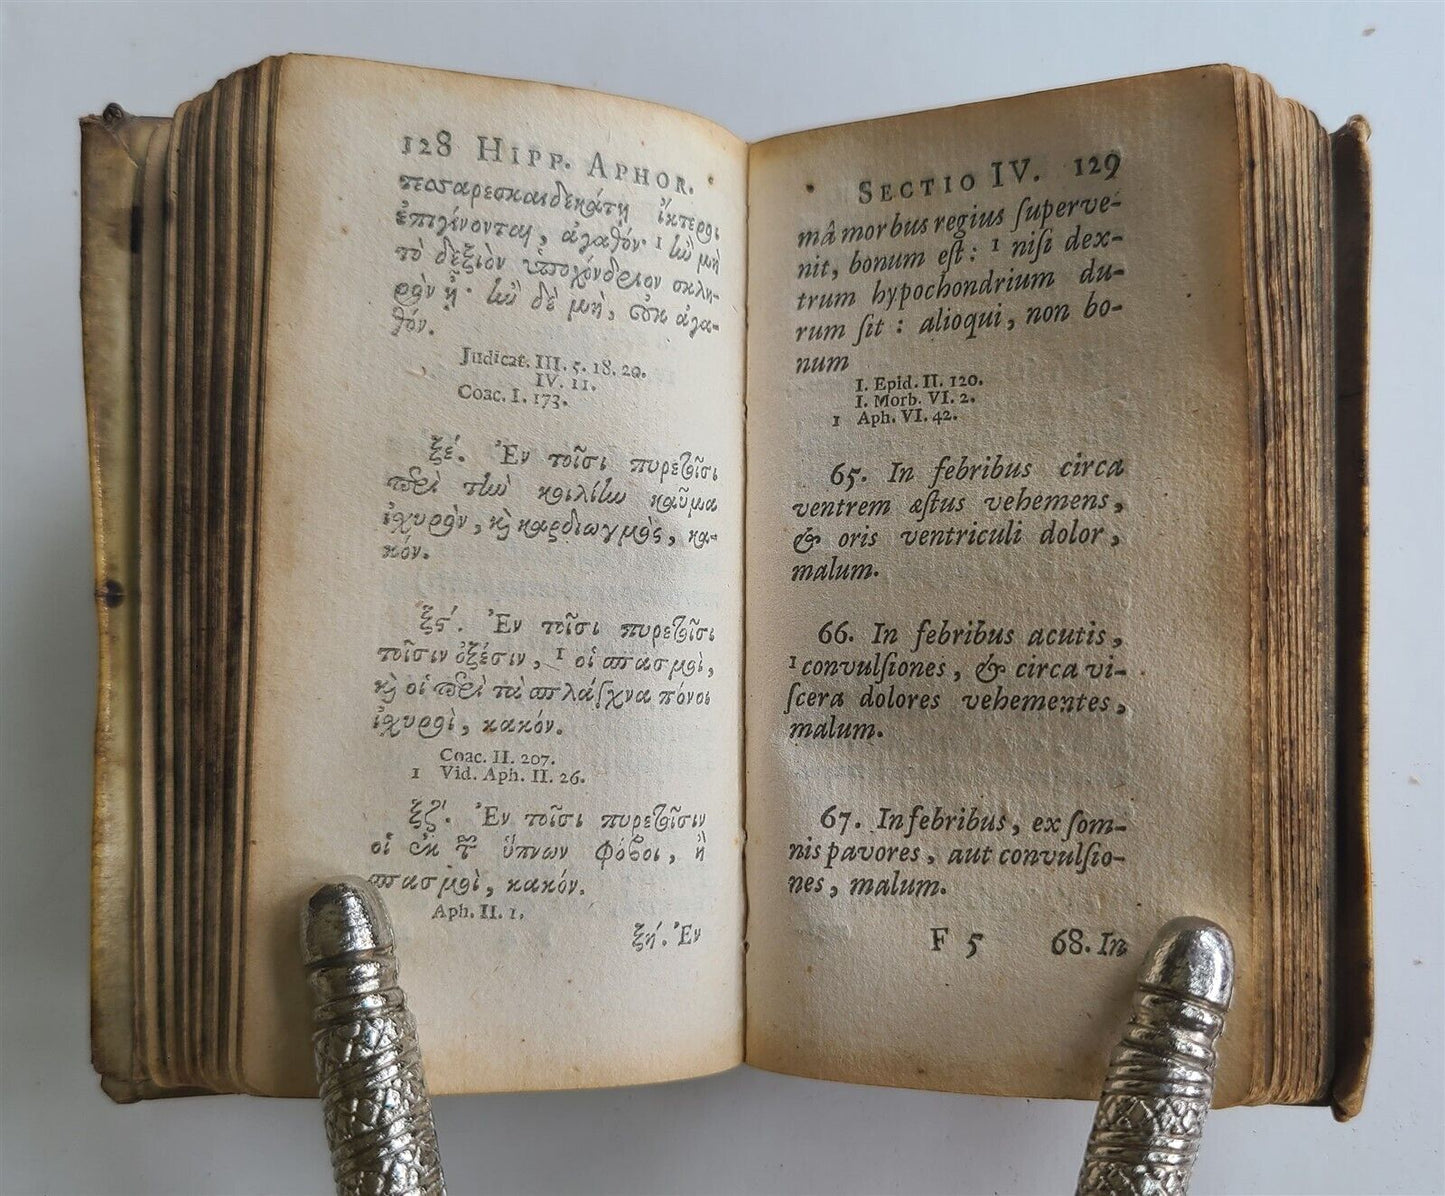 128 HIPP. APHOR.
τεσσαρεσκαιδεκάτῃ ἴκτεροι
ἐπιγίνονται, ἀγαθόν· 1 ἢν μὴ
τὸ δεξιὸν ὑποχόνδριον σκλη-
ρὸν ᾖ· ἢν δὲ μὴ, οὐκ ἀγα-
θόν.
Judicat. III. 5. 18. 20.
IV. 11.
Coac. I. 173.
ξέ. Ἐν τοῖσι πυρετοῖσι
περὶ τὴν κοιλίην καῦμα
ἰχυρὸν, κὴ καρδιωγμὸς, κα-
κόν.
ξϛ́. Ἐν τοῖσι πυρετοῖσι
τοῖσιν ὀξέσιν, 1 οἱ σπασμοὶ,
κὴ οἱ περὶ τὰ σπλάγχνα πόνοι
ἰχυροὶ, κακόν.
Coac. II. 207.
1 Vid. Aph. II. 26.
ξζ́. Ἐν τοῖσι πυρετοῖσιν
οἱ ἐκ τῶν ὕπνων φόβοι, ἢ
σπασμοὶ, κακόν.
Aph. II. 1.
ξή. Ἐν
SECTIO IV. 129
mâ morbus regius ſuperve-
nit, bonum eſt: 1 niſi dex-
trum hypochondrium du-
rum ſit: alioqui, non bo-
num
I. Epid. II. 120.
I. Morb. VI. 2.
1 Aph. VI. 42.
65. In febribus circa
ventrem æſtus vehemens,
& oris ventriculi dolor,
malum.
66. In febribus acutis,
1 convulſiones, & circa vi-
ſcera dolores vehementes,
malum.
67. In febribus, ex ſom-
nis pavores, aut convulſio-
nes, malum.
F 5 68. In